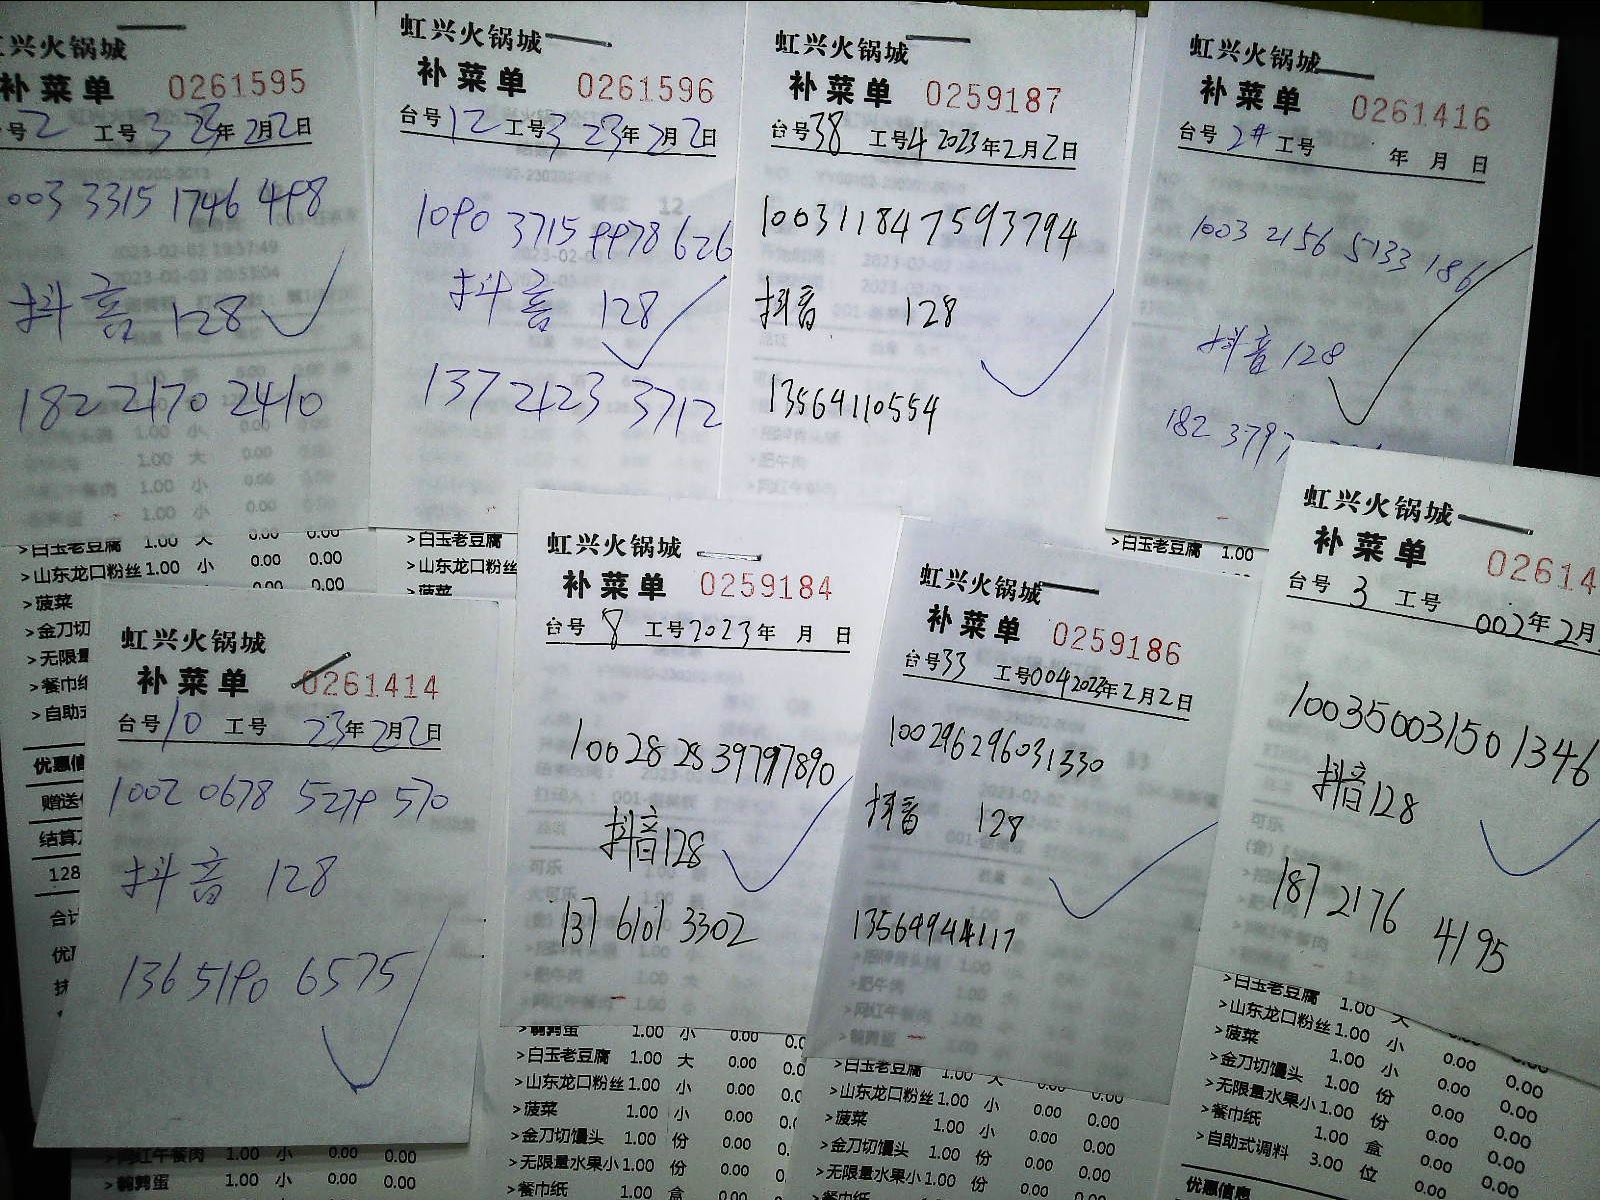 虹兴火锅城
补菜单 0261595
台号 2 工号 3 23年 2月 2日
003 3315 1746 498
抖音 128
182 2170 2410
虹兴火锅城
补菜单 0261596
台号 12 工号 3 23年 2月 2日
1090 3715 9978 626
抖音 128
137 2123 3712
虹兴火锅城
补菜单 0259187
台号 38 工号 4 2023年 2月 2日
100311847593794
抖音 128
13564110554
虹兴火锅城
补菜单 0261416
台号 2# 工号 年 月 日
1003 2156 5133 186
抖音 128
182 3797
>白玉老豆腐 1.00 大 0.00 0.00
>山东龙口粉丝 1.00 小 0.00 0.00
>菠菜
>金刀切
>无限量
>餐巾纸
>自助式
优惠信
赠送
128
合计
>白玉老豆腐
>山东龙口粉丝
>菠菜
>白玉老豆腐 1.00
虹兴火锅城
补菜单 0261414
台号 10 工号 23年 2月 2日
1002 0678 5279 570
抖音 128
136 5190 6575
>网红午餐肉 1.00 小 0.00 0.00
>鹌鹑蛋 1.00 小 0.00 0.00
虹兴火锅城
补菜单 0259184
台号 8 工号 2023年 月 日
100282839797890
抖音 128
137 6101 3302
>鹌鹑蛋 1.00 小 0.00
>白玉老豆腐 1.00 大 0.00
>山东龙口粉丝 1.00 小 0.00
>菠菜 1.00 小 0.00
>金刀切馒头 1.00 份 0.00
>无限量水果小 1.00 份 0.00
>餐巾纸 1.00 盒 0.00
虹兴火锅城
补菜单 0259186
台号 33 工号 004 2023年 2月 2日
100296296031330
抖音 128
13564944117
>白玉老豆腐 1.00 大 0.00 0.00
>山东龙口粉丝 1.00 小 0.00 0.00
>菠菜 1.00 小 0.00 0.00
>金刀切馒头 1.00 份 0.00 0.00
>无限量水果小 1.00 份 0.00 0.00
>餐巾纸 1.00 盒 0.00 0.00
虹兴火锅城
补菜单 02614
台号 3 工号 002年 2月
100350031501346
抖音 128
187 2176 4195
>白玉老豆腐 1.00 大 0.00 0.00
>山东龙口粉丝 1.00 小 0.00 0.00
>菠菜 1.00 小 0.00 0.00
>金刀切馒头 1.00 份 0.00 0.00
>无限量水果小 1.00 份 0.00 0.00
>餐巾纸 1.00 盒 0.00 0.00
>自助式调料 3.00 位 0.00 0.00
优惠信息